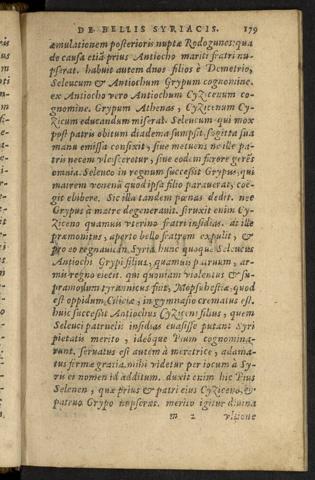 DE BELLIS SYRIACIS. 179
æmulationem posterioris nuptæ Rodogunes: qua
de causa etiã prius Antiocho mariti fratri nu-
pserat. habuit autem duos filios è Demetrio,
Seleucum & Antiochum Grypum cognomine.
ex Antiocho vero Antiochum Cyzicenum co-
gnomine. Grypum Athenas, Cyzicenum Cy-
zicum educandum miserat. Seleucum qui mox
post patris obitum diadema sumpsit, sagitta sua
manu emissa confixit, siue metuens ne ille pa-
tris necem vlcisceretur, siue eodem furore gerẽs
omnia. Seleuco in regnum successit Grypus, qui
matrem venenũ quod ipsa filio parauerat, coe-
git ebibere. Sic illa tandem pœnas dedit. nec
Grypus à matre degenerauit. struxit enim Cy-
ziceno quamuis vterino fratri insidias. at ille
præmonitus, aperto bello fratrem expulit, &
pro eo regnauit in Syria. hunc quoque Seleucus
Antiochi Grypi filius, quamuis patruum, ar-
mis regno eiecit. qui quoniam violentus & su-
pramodum tyrannicus fuit, Mopsuhestiæ, quod
est oppidum Ciliciæ, in gymnasio crematus est.
huic successit Antiochus Cyziceni filius, quem
Seleuci patruelis insidias euasisse putant Syri
pietatis merito, ideóque Pium cognomina-
runt. seruatus est autem à meretrice, adama-
tus formæ gratia. mihi videtur per iocum à Sy-
ris ei nomen id additum. duxit enim hic Pius
Selenen, quæ prius & patri eius Cyziceno, &
patruo Grypo nupserat. merito igitur diuina
m 2 vltione